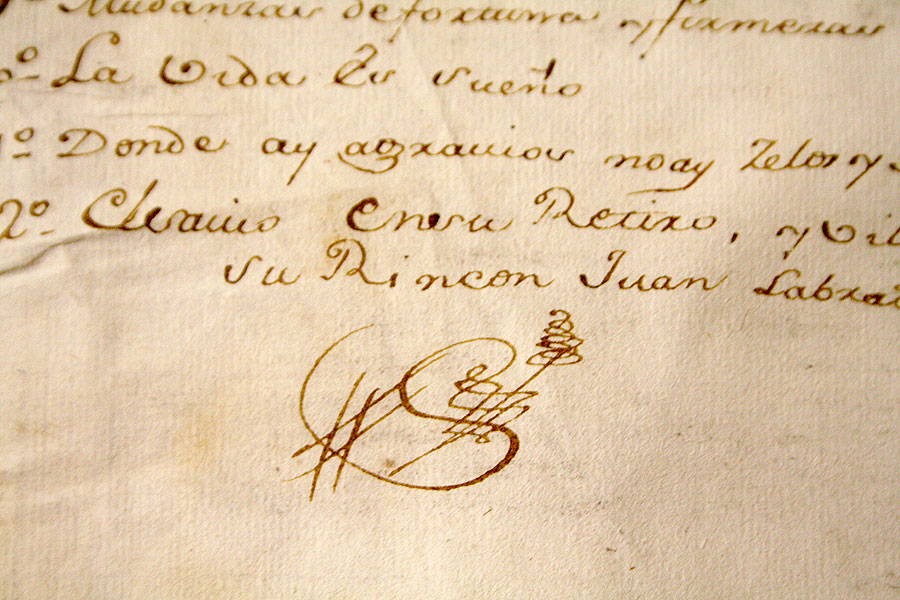 Mudanzas de fortuna y firmezas
La Vida Es sueño
1º Donde ay agravios no ay Zelos y
2º- El sauio En su Retiro, y Vil
su Rincon Juan Labra